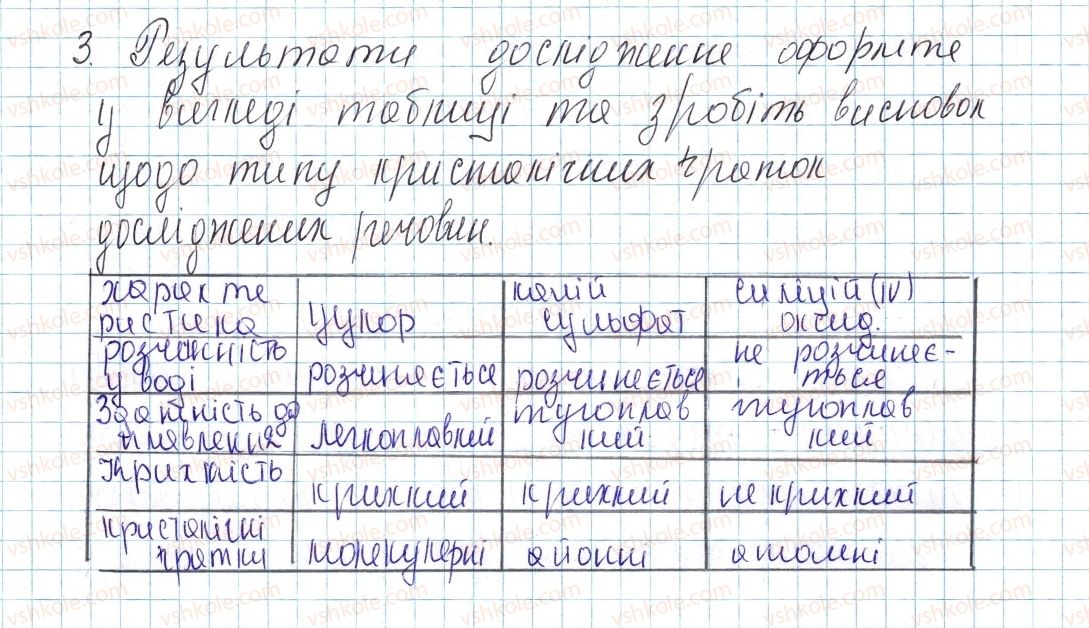 3. Результати дослідження оформте
у вигляді таблиці та зробіть висновок
щодо типу кристалічних ґраток
досліджених речовин.
характе
ристика
цукор
калій
сульфат
силіцій (IV)
оксид.
розчинність
у воді
розчиняється
розчиняється
не розчиняє-
ться
Здатність до
плавлення
легкоплавкий
тугоплав
кий
тугоплав
кий
Крихкість
крихкий
крихкий
не крихкий
Кристалічні
ґратки
молекулярні
йонні
атомні